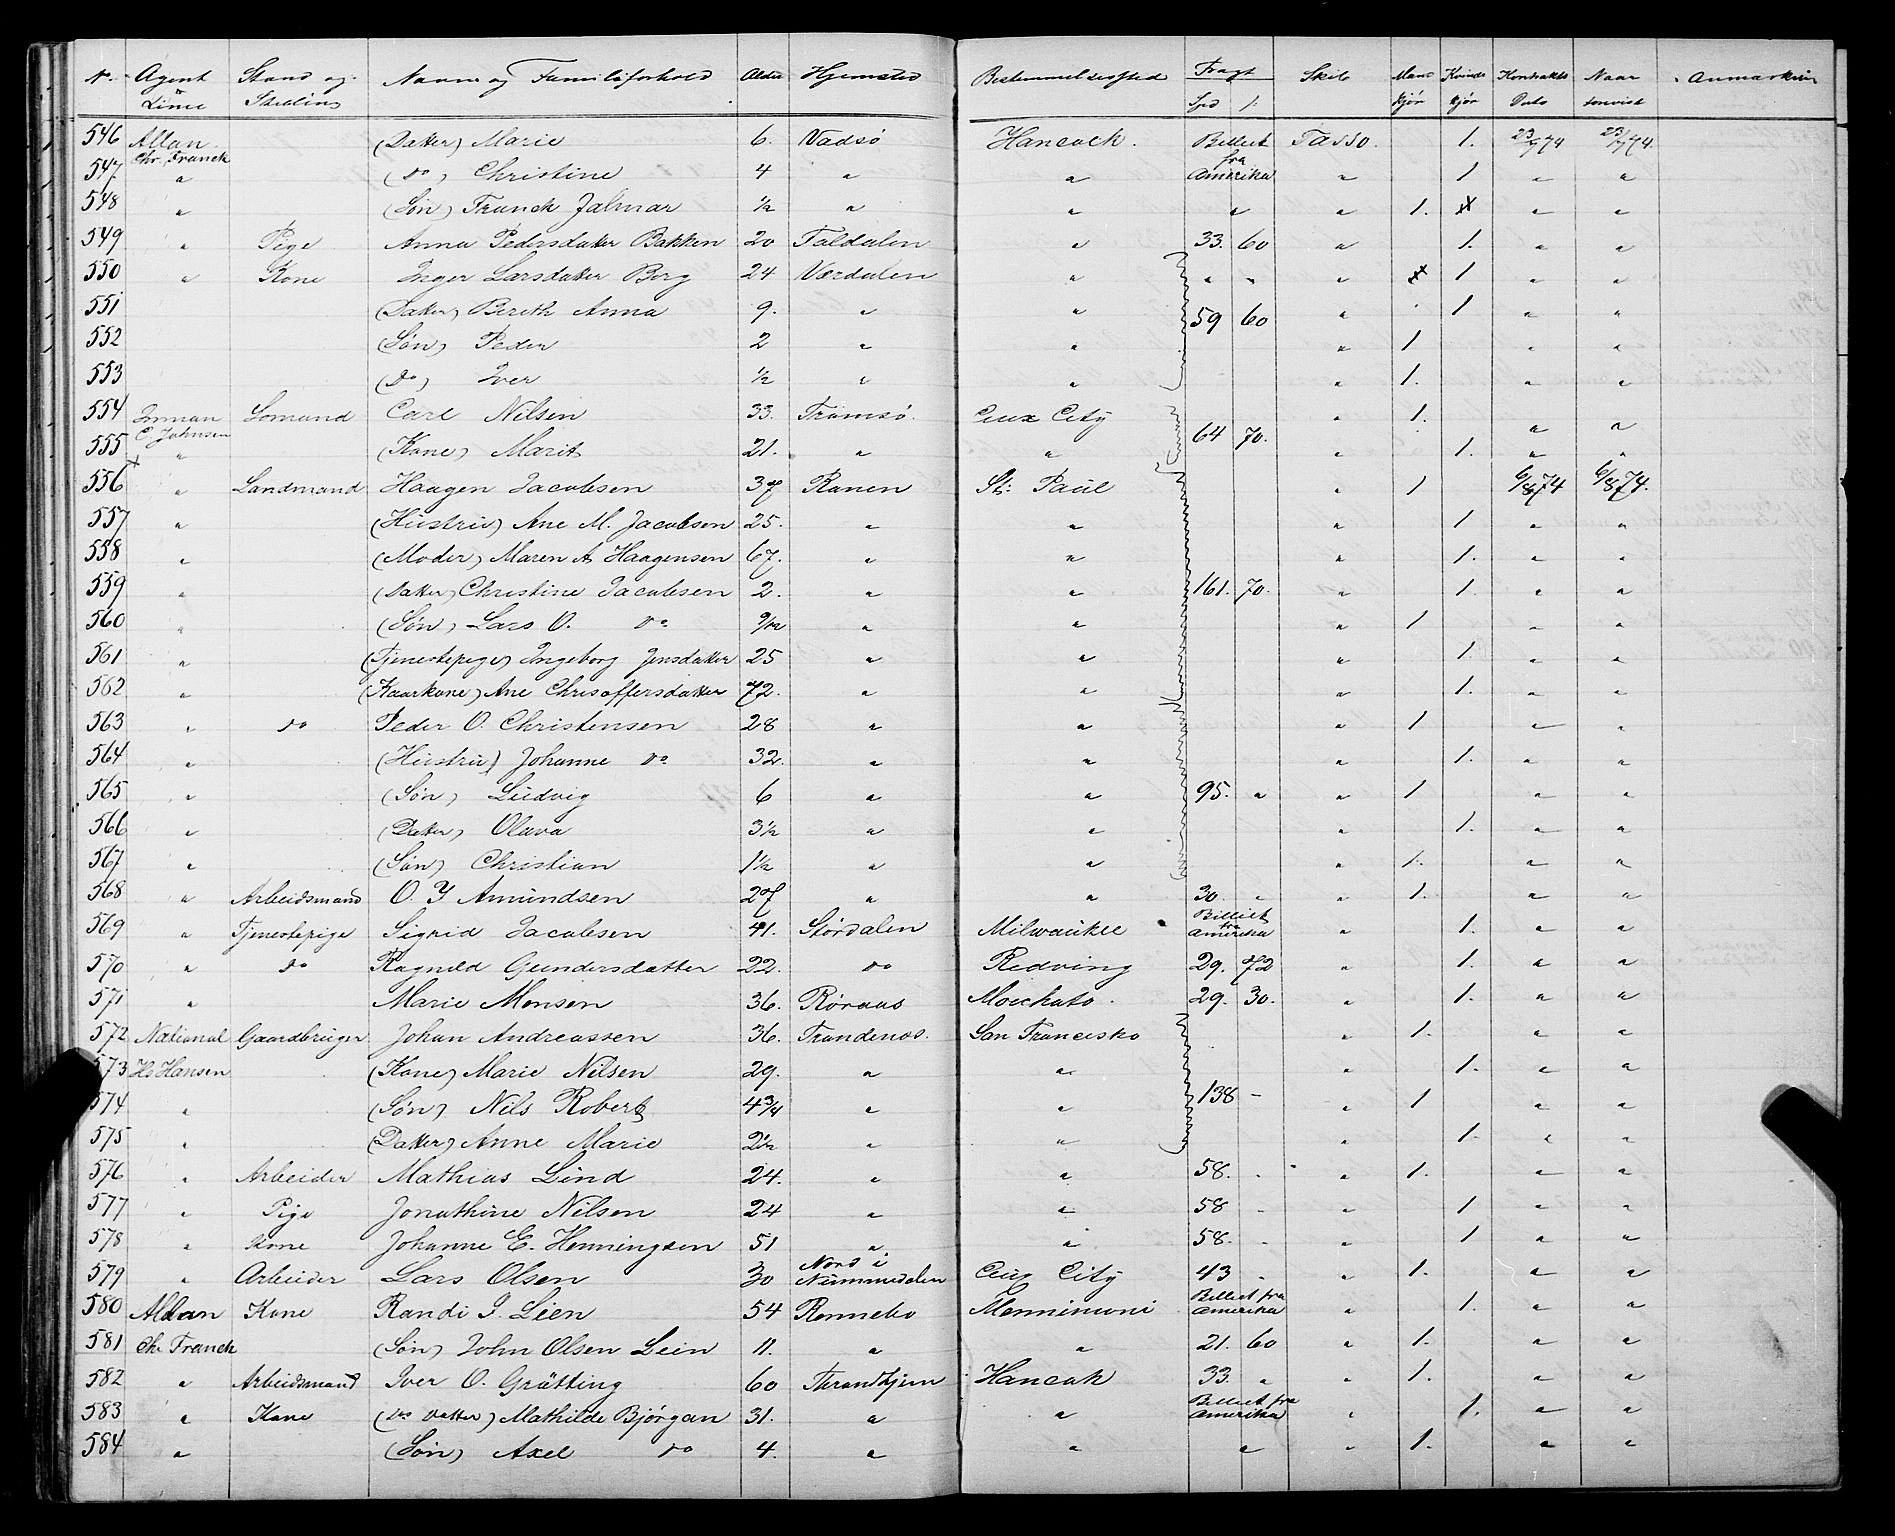 No Agent & Linie Stand og Stilling Navn og Familieforhold Alder Hjemsted Bestemmelsessted Fragt Spd ß Skib Mand kjøn Kvinde kjøn Kontrakts Dato Naar
546 Allan (Datter) Marie 6. Vadsø Hancock. Billet fra Amerika Tasso. 1. 23/7 74 23/7 74.
547 Chr. Franck " (do) Christine 4 " " " 1 " "
548 " (Søn) Franck Jalmar ½ " " " " 1. " "
549 " Pige Anna Pedersdatter Bakken 20 Faldalen " 33. 60 " 1. " "
550 " Kone Inger Larsdatter Berg 24 Værdalen " " " " 1 " "
551 (Datter) Bereth Anna 9. " " 59 60 " 1 " "
552 (Søn) Peder 2 " " " 1 " "
553 (do) Iver ½ " " " 1. " "
554 Inman Somand Carl Nilsen 33. Tromsø. Ceux City " 1. " "
555 C. Johnsen " (Kone) Marit 21. " " 64 70. " 1. " "
556 " Landmand Haagen Jacobsen 37 Ranen St: Paul " 1 6/8 74 6/8 74.
557 " (Hustru) Ane M. Jacobsen 25. " " " 1 " "
558 " (Moder) Maren A Haagensen 67. " " " 1. " "
559 " (Datter) Christine Jacobsen 2. " " 161. 70. " 1. " "
560 " (Søn) Lars O. do 9/12 " " " 1 " "
561 " (Tjenestepige) Ingeborg Jensdatter 25 " " " 1. " "
562 " (Kaarkone) Ane Chrisoffersdatter 72. " " " 1. " "
563 " do Peder O. Christensen 28 " " " 1 " "
564 " (Hustru) Johanne do 32. " " " 1. " "
565 " (Søn) Ludvig 6 " " 95. " " 1 " "
566 " (Datter) Olava 3½ " " " 1. " "
567 " (Søn) Christian 1½ " " " 1. " "
568 " Arbeidsmand O. Y Amundsen 27 " " 30. " " 1. " "
569 " Tjenestepige Sigrid Jacobsen 41. Størdalen Milwaukee Billiet fra Amerika " 1. " "
570 " do Ragnild Gundersdatter 22. do Redving 29. 72 " 1. " "
571 " Marie Monsen 36. Røraas Moechato. 29. 30. " 1. " "
572 National Gaardbruger Johan Andreassen 36. Trondenos. San Francisko " 1. " "
573 Hs Hansen (Kone) Marie Nilsen 29. " " " 1. " "
574 " (Søn) Nils Robert 4¾ " " 138 - " 1 " "
575 " (Datter) Anne Marie 2½ " " " 1. " "
576 " Arbeider Mathias Lind 24. " " 58. - " 1. " "
577 " Pige Jonathine Nilsen 24 " " 58 - " 1 " "
578 " Kone Johanne E. Henningsen 51 " " 58. - " 1 " "
579 " Arbeider Lars Olsen 30 Nord i Nummedalen Ceux City 43 - " 1. " "
580 Allan Kone Randi J. Lien 54 Rennebo Menninioni Billiet fra Amerika " 1. " "
581 Ch. Franck (Søn) John Olsen Lein 11. " " 21. 60 " 1. " "
582 " Arbeidsmand Iver O. Grøtting 60 Throndhjem Hancok 33. " " 1. " "
583 " Kone (Ds Datter) Mathilde Bjørgan 31. " " Billiet fra Amerika " 1. " "
584 " (Søn) Axel do 4. " " " " 1. " "